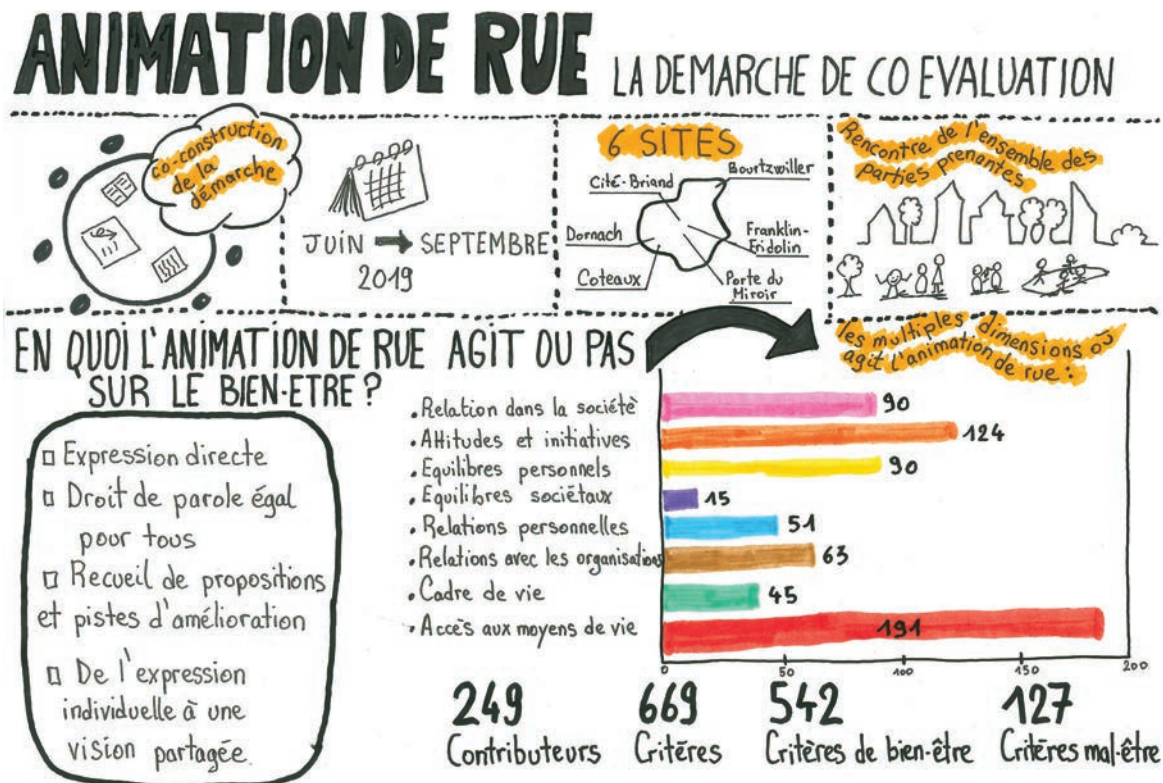 ANIMATION DE RUE LA DEMARCHE DE CO EVALUATION
co-construction
de la
démarche
JUIN → SEPTEMBRE
2019
6 SITES
Cité-Briand
Bourtzwiller
Dornach
Franklin-
Fridolin
Coteaux
Porte du
Miroir
Rencontre de l'ensemble des
parties prenantes
EN QUOI L'ANIMATION DE RUE AGIT OU PAS
SUR LE BIEN-ETRE ?
□ Expression directe
□ Droit de parole égal
pour tous
□ Recueil de propositions
et pistes d'amélioration
□ De l'expression
individuelle à une
vision partagée.
les multiples dimensions où
agit l'animation de rue :
• Relation dans la société 90
• Attitudes et initiatives 124
• Equilibres personnels 90
• Equilibres sociétaux 15
• Relations personnelles 51
• Relations avec les organisations 63
• Cadre de vie 45
• Accès aux moyens de vie 191
0 50 100 150 200
249 669 542 127
Contributeurs Critères Critères de bien-être Critères mal-être